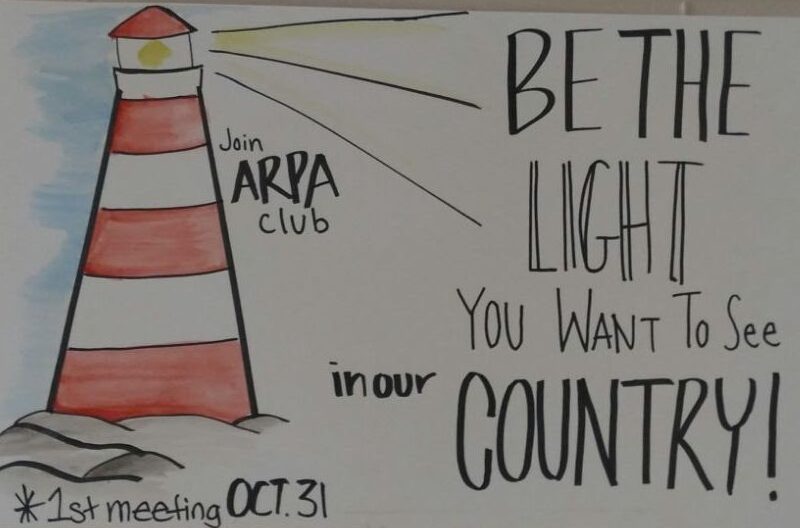 Join
ARPA
club
BE THE
LIGHT
YOU WANT To See
in our
COUNTRY!
*1st meeting OCT. 31